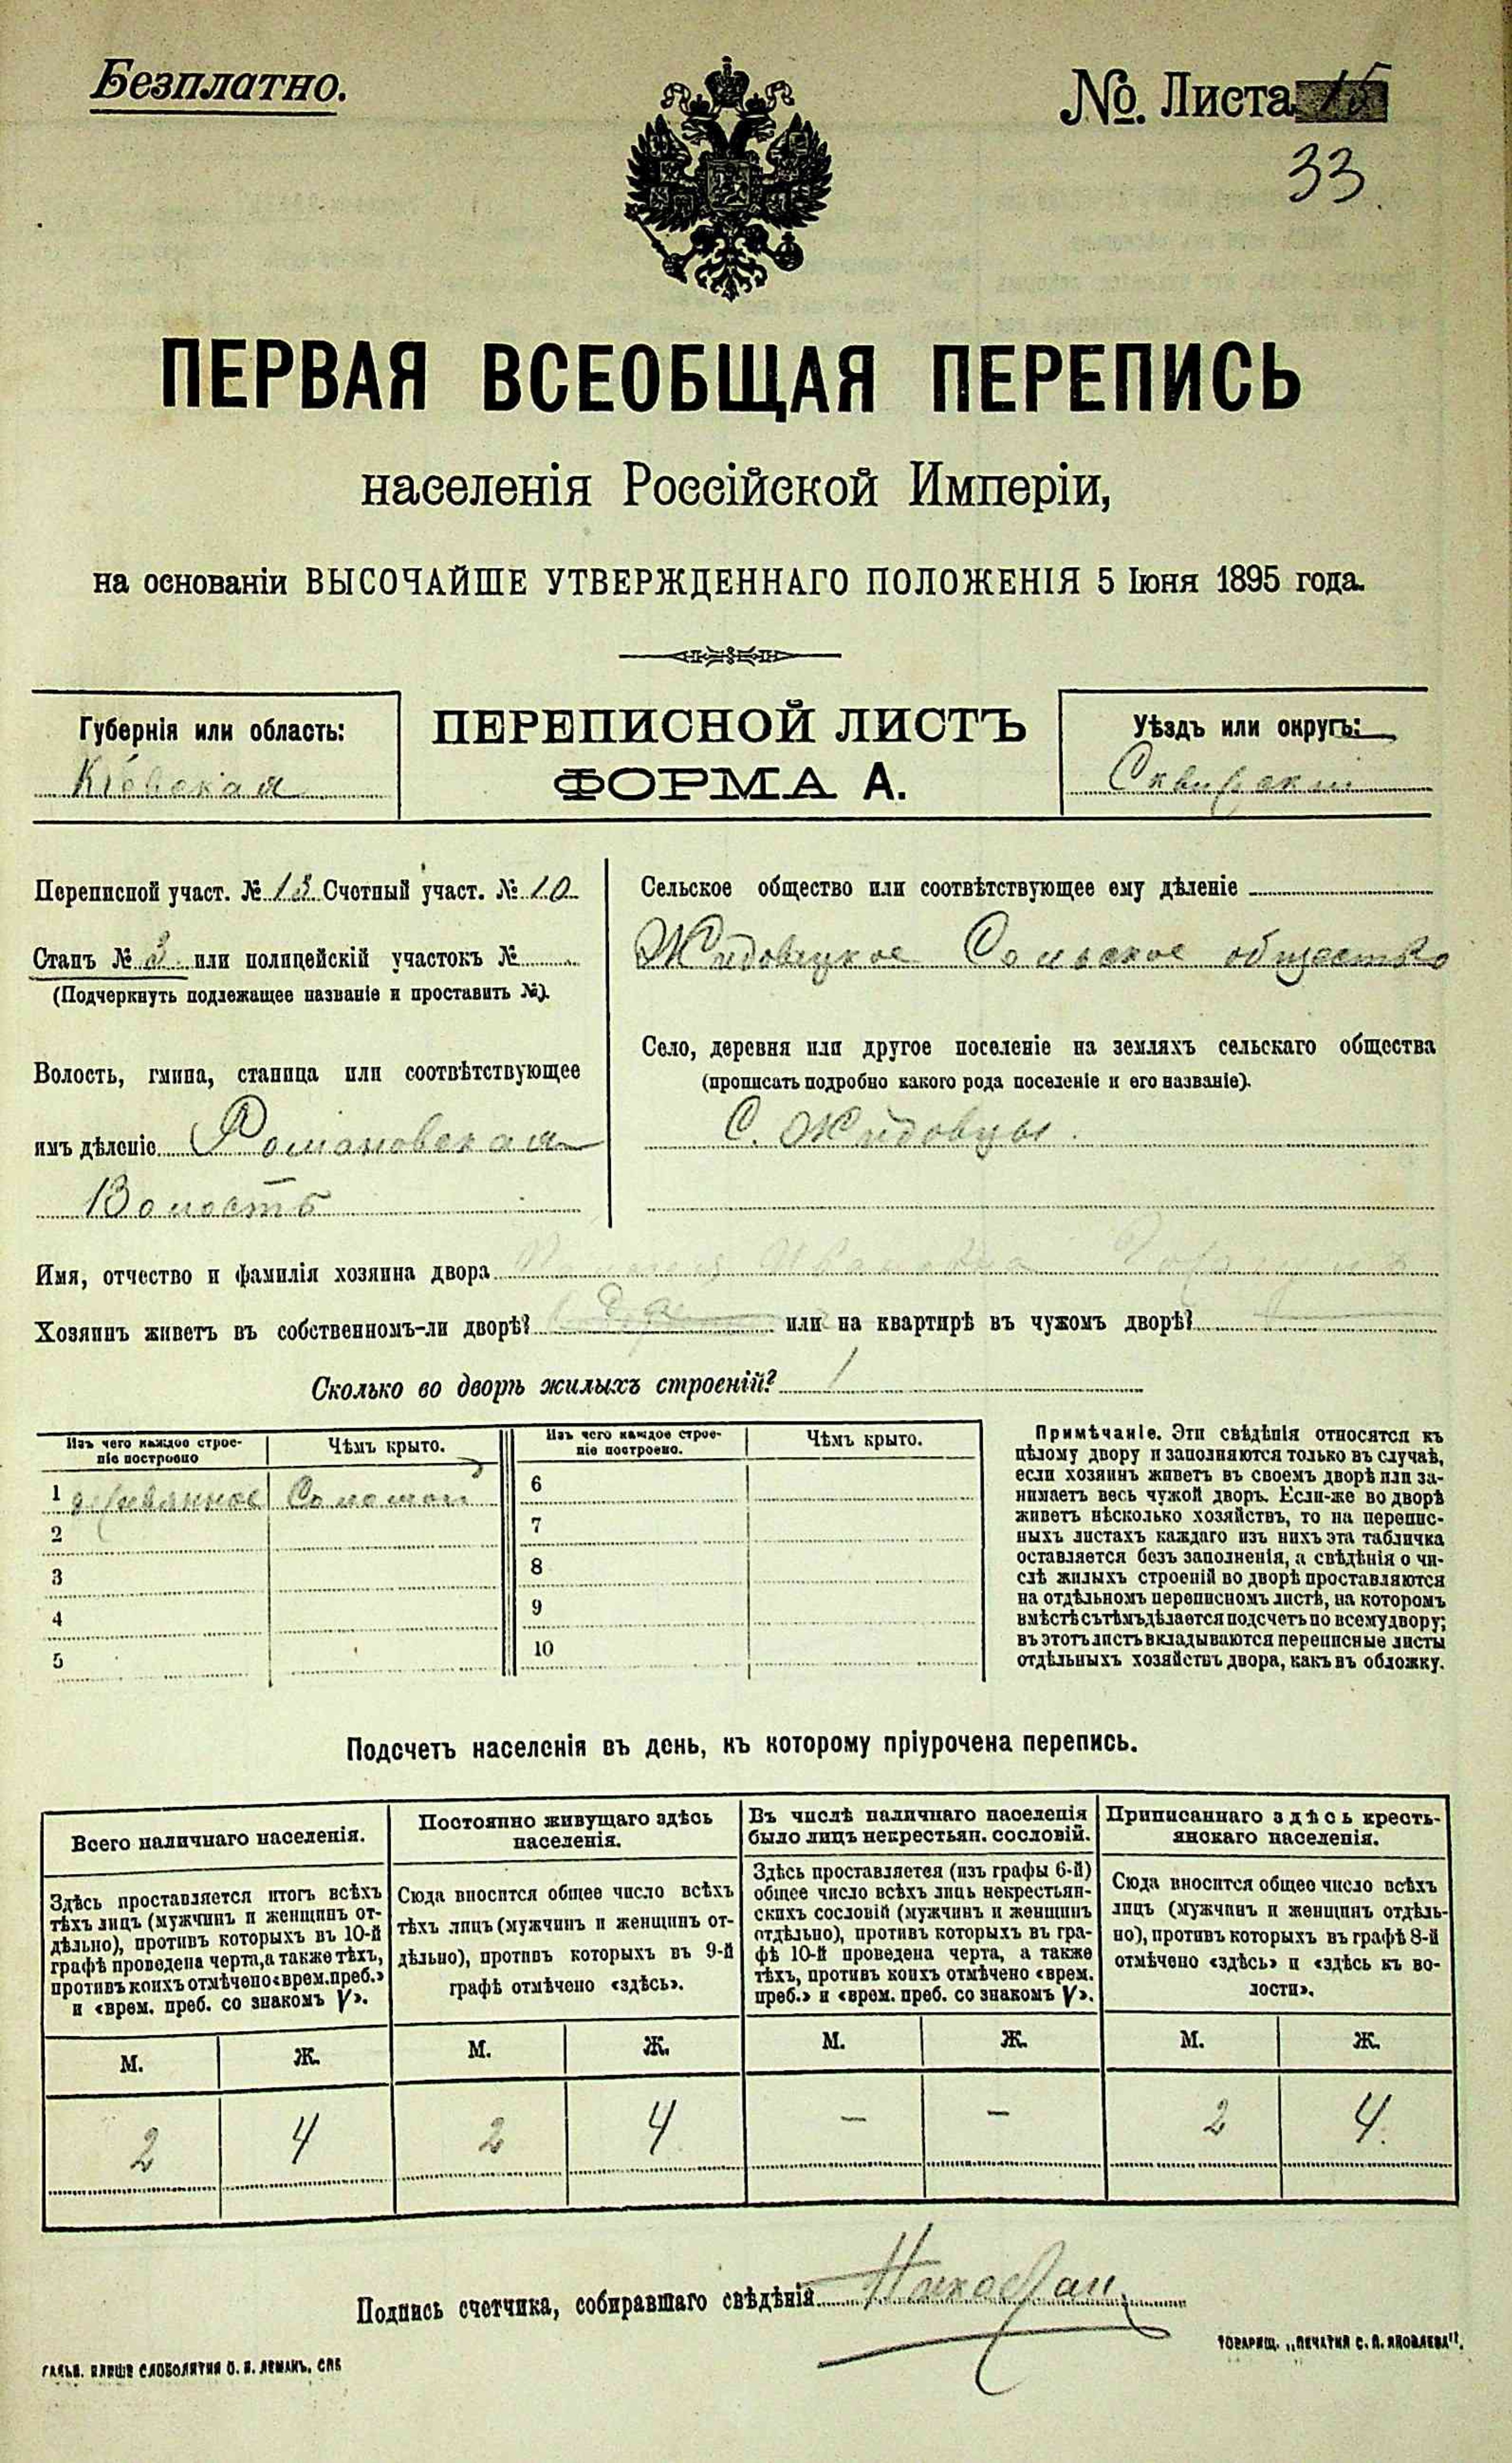 Безплатно.
№. Листа 15
33
ПЕРВАЯ ВСЕОБЩАЯ ПЕРЕПИСЬ
населенія Россійской Имперіи,
на основаніи ВЫСОЧАЙШЕ УТВЕРЖДЕННАГО ПОЛОЖЕНІЯ 5 Іюня 1895 года.
Губернія или область:
Кіевская
ПЕРЕПИСНОЙ ЛИСТЪ
ФОРМА А.
Уѣздъ или округъ:
Сквирскій
Переписной участ. № 13 Счетный участ. № 10
Станъ № 3 или полицейскій участокъ №
(Подчеркнуть подлежащее названіе и проставить №).
Волость, гмина, станица или соотвѣтствующее
имъ дѣленіе Романовская
Волость
Сельское общество или соотвѣтствующее ему дѣленіе
Жидовецкое Сельское общество
Село, деревня или другое поселеніе на земляхъ сельскаго общества
(прописать подробно какого рода поселеніе и его названіе).
С. Жидовцы.
Имя, отчество и фамилія хозяина двора
Хозяинъ живетъ въ собственномъ-ли дворѣ? да или на квартирѣ въ чужомъ дворѣ?
Сколько во дворѣ жилыхъ строеній? 1
Изъ чего каждое строе-
ніе построено
Чѣмъ крыто.
Изъ чего каждое строе-
ніе построено.
Чѣмъ крыто.
1 деревянное Соломой
2
3
4
5
6
7
8
9
10
Примѣчаніе. Эти свѣдѣнія относятся къ
цѣлому двору и заполняются только въ случаѣ,
если хозяинъ живетъ въ своемъ дворѣ или за-
нимаетъ весь чужой дворъ. Если-же во дворѣ
живетъ нѣсколько хозяйствъ, то на перепис-
ныхъ листахъ каждаго изъ нихъ эта табличка
оставляется безъ заполненія, а свѣдѣнія о чи-
слѣ жилыхъ строеній во дворѣ проставляются
на отдѣльномъ переписномъ листѣ, на которомъ
вмѣстѣ съ тѣмъ дѣлается подсчетъ по всему двору;
въ этотъ листъ вкладываются переписные листы
отдѣльныхъ хозяйствъ двора, какъ въ обложку.
Подсчетъ населенія въ день, къ которому пріурочена перепись.
Всего наличнаго населенія.
Постоянно живущаго здѣсь
населенія.
Въ числѣ наличнаго населенія
было лицъ некрестьян. сословій.
Приписаннаго здѣсь кресть-
янскаго населенія.
Здѣсь проставляется итогъ всѣхъ
тѣхъ лицъ (мужчинъ и женщинъ от-
дѣльно), противъ которыхъ въ 10-й
графѣ проведена черта, а также тѣхъ,
противъ коихъ отмѣчено «врем. преб.»
и «врем. преб. со знакомъ V».
Сюда вносится общее число всѣхъ
тѣхъ лицъ (мужчинъ и женщинъ от-
дѣльно), противъ которыхъ въ 9-й
графѣ отмѣчено «здѣсь».
Здѣсь проставляется (изъ графы 6-й)
общее число всѣхъ лицъ некрестьян-
скихъ сословій (мужчинъ и женщинъ
отдѣльно), противъ которыхъ въ гра-
фѣ 10-й проведена черта, а также
тѣхъ, противъ коихъ отмѣчено «врем.
преб.» и «врем. преб. со знакомъ V».
Сюда вносится общее число всѣхъ
лицъ (мужчинъ и женщинъ отдѣль-
но), противъ которыхъ въ графѣ 8-й
отмѣчено «здѣсь» и «здѣсь къ во-
лости».
М. Ж. М. Ж. М. Ж. М. Ж.
2 4 2 4 – – 2 4.
Подпись счетчика, собиравшаго свѣдѣнія
ГАЛЬВ. КЛИШЕ СЛОВОЛИТНИ О. И. ЛЕМАНЪ, СПБ
ТОВАРИЩ. „ПЕЧАТНЯ С. П. ЯКОВЛЕВА".